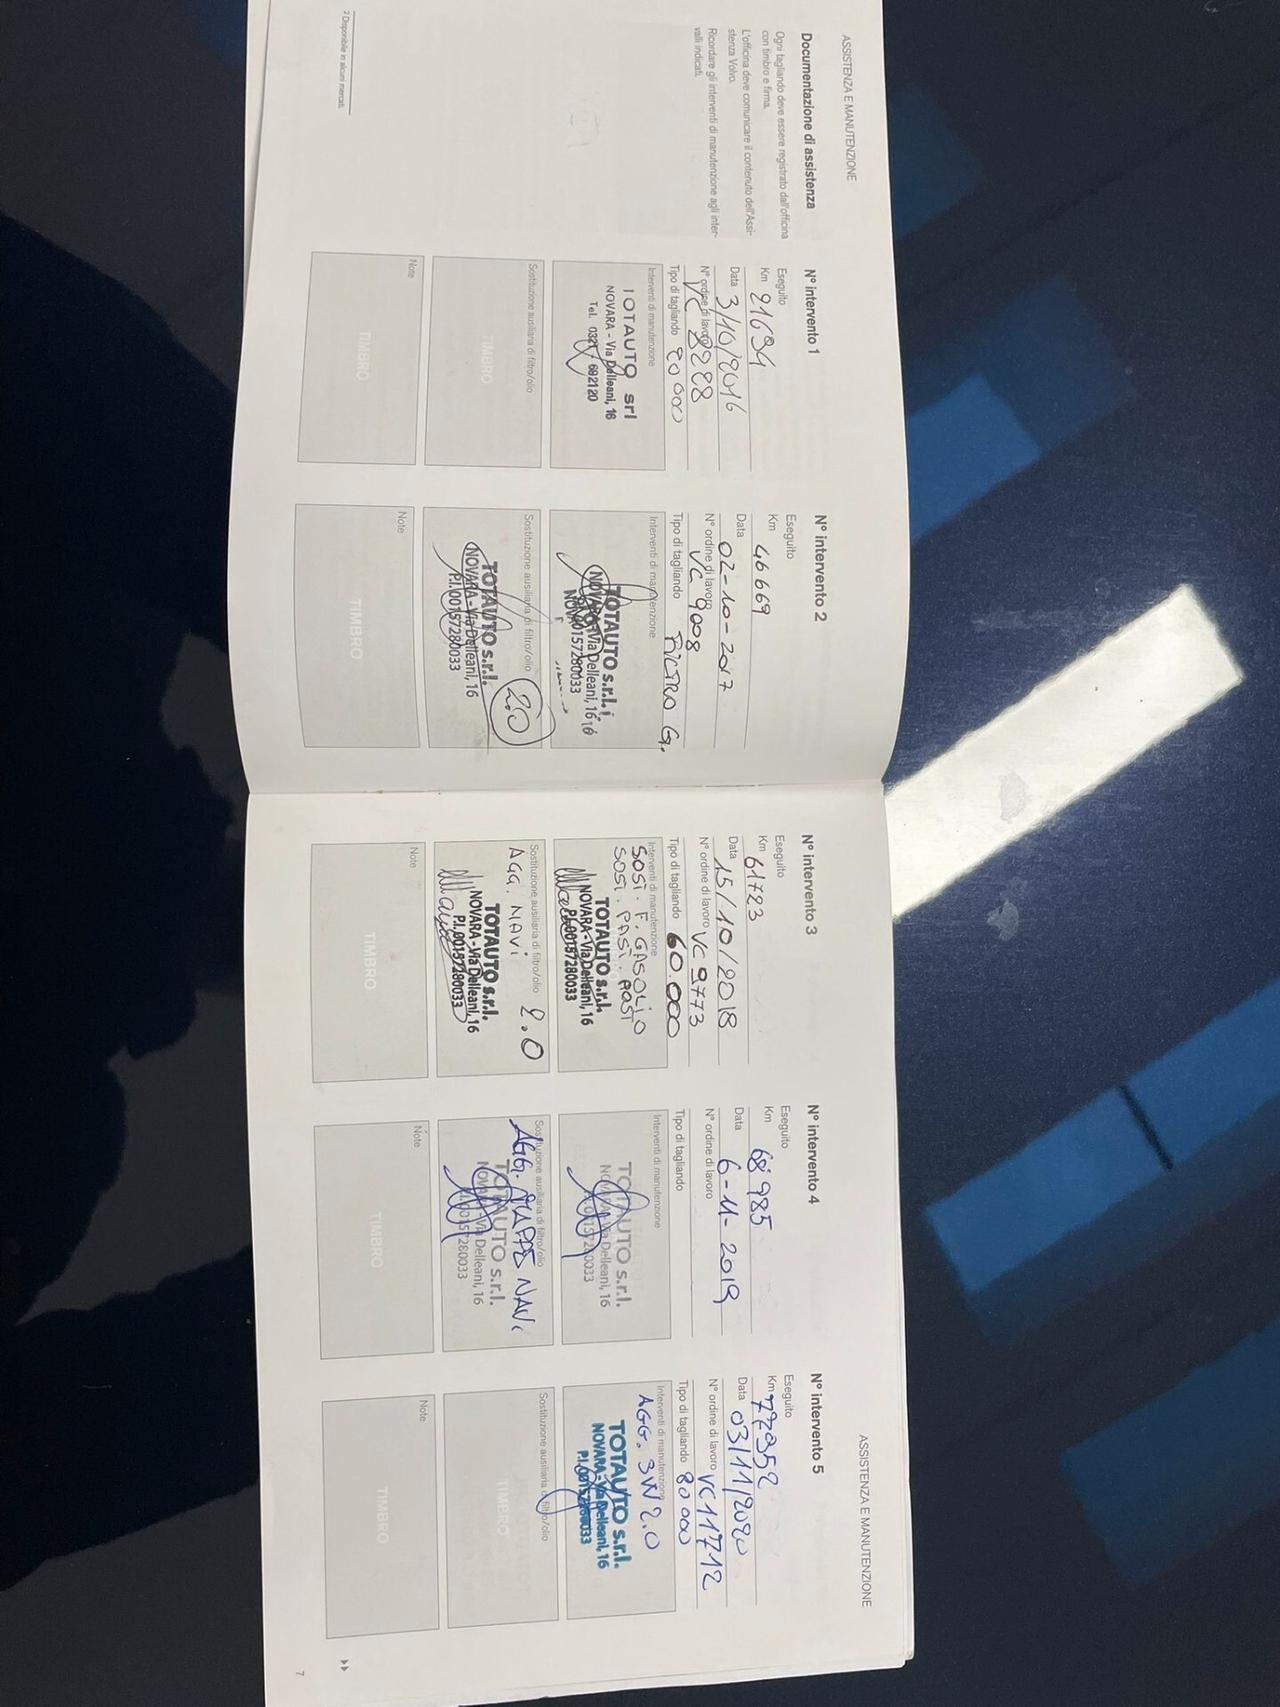 ASSISTENZA E MANUTENZIONE
Documentazione di assistenza
Ogni tagliando deve essere registrato dall'officina
con timbro e firma.
L'officina deve comunicare il contenuto dell'Assi-
stenza Volvo.
Ricordare gli interventi di manutenzione agli inter-
valli indicati.
2 Disponibile in alcuni mercati.
N° intervento 1
Eseguito
Km 21694
Data 3/10/2016
N° ordine di lavoro VC 8228
Tipo di tagliando 20 000
Interventi di manutenzione
TOTAUTO srl
NOVARA - Via Delleani, 16
Tel. 0321 - 692120
Sostituzione ausiliaria di filtro/olio
TIMBRO
Note
TIMBRO
N° intervento 2
Eseguito
Km 46669
Data 02-10-2017
N° ordine di lavoro VC 9008
Tipo di tagliando FILTRO G.
Interventi di manutenzione
TOTAUTO s.r.l.
NOVARA - Via Delleani, 16
Sostituzione ausiliaria di filtro/olio
2.0
TOTAUTO s.r.l.
NOVARA - Via Delleani, 16
P.I. 00157280033
Note
TIMBRO
N° intervento 3
Eseguito
Km 61723
Data 15/10/2018
N° ordine di lavoro VC 9773
Tipo di tagliando 60.000
Interventi di manutenzione
SOST. F. GASOLIO
SOST. PAST. POST
TOTAUTO s.r.l.
NOVARA - Via Delleani, 16
P.I. 00157280033
Sostituzione ausiliaria di filtro/olio 2.0
AGG. NAVI
TOTAUTO s.r.l.
NOVARA - Via Delleani, 16
P.I. 00157280033
Note
TIMBRO
N° intervento 4
Eseguito
Km 68985
Data 6-11-2019
N° ordine di lavoro
Tipo di tagliando
Interventi di manutenzione
TOTAUTO s.r.l.
NOVARA - Via Delleani, 16
P.I. 00157280033
Sostituzione ausiliaria di filtro/olio
AGG. MAPPE NAVI
TOTAUTO s.r.l.
NOVARA - Via Delleani, 16
P.I. 00157280033
Note
TIMBRO
ASSISTENZA E MANUTENZIONE
N° intervento 5
Eseguito
Km 77952
Data 03/11/2020
N° ordine di lavoro VC11712
Tipo di tagliando 80 000
Interventi di manutenzione
AGG. SW 2.0
TOTAUTO s.r.l.
NOVARA - Via Delleani, 16
P.I. 00157280033
Sostituzione ausiliaria di filtro/olio
TIMBRO
Note
TIMBRO
7